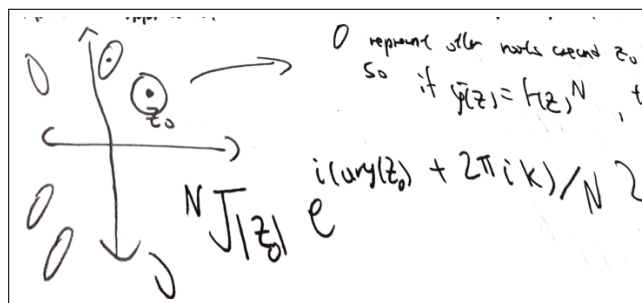 0 represent other roots around z₀
So if g(z) = f(z)^N , t
z₀
^N√|z₀| e^{i(arg(z₀) + 2πik)/N}